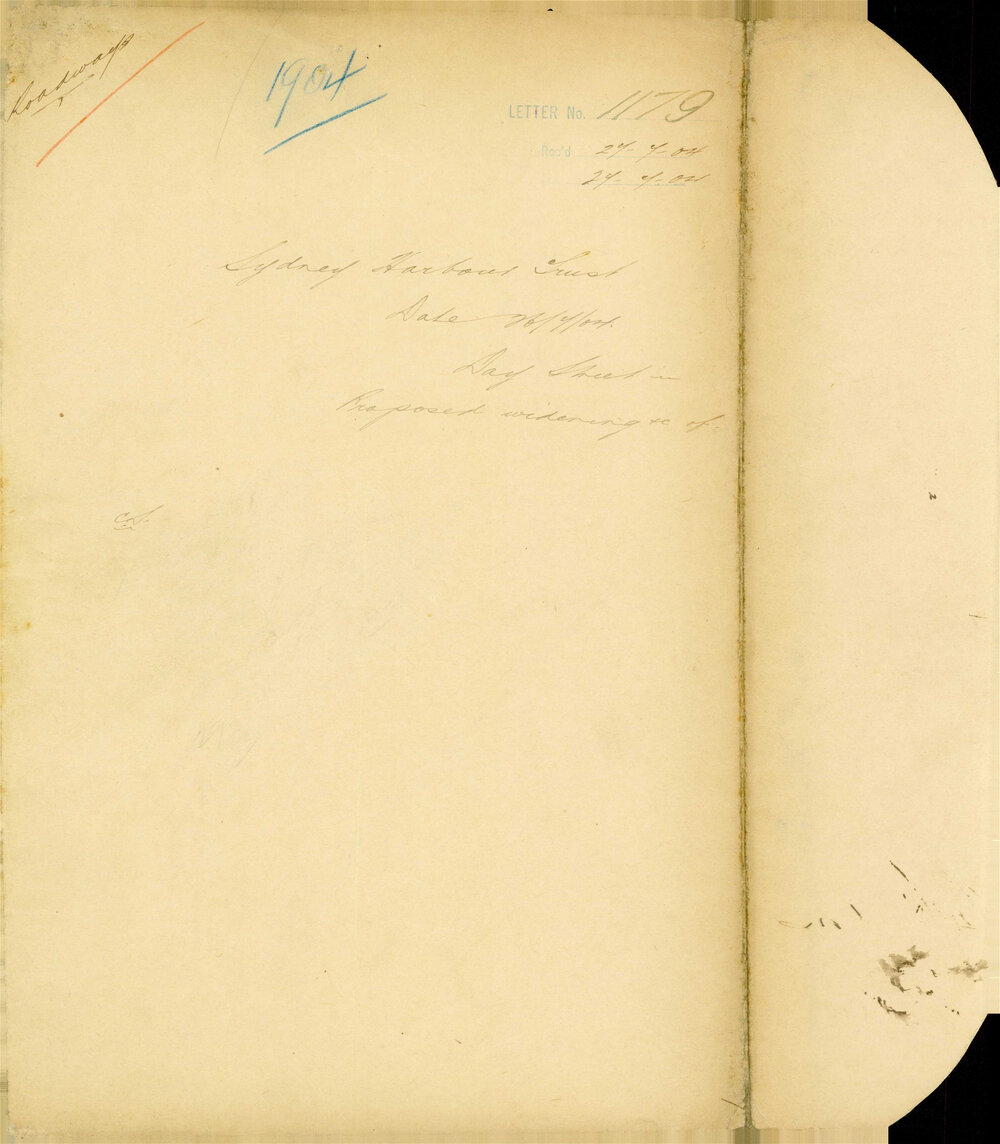 Roadways
1904
LETTER No. 1179
Rec'd 27-7-04
27-7-04
Sydney Harbour Trust
Date 26/7/04.
Day Street
Proposed widening &c of